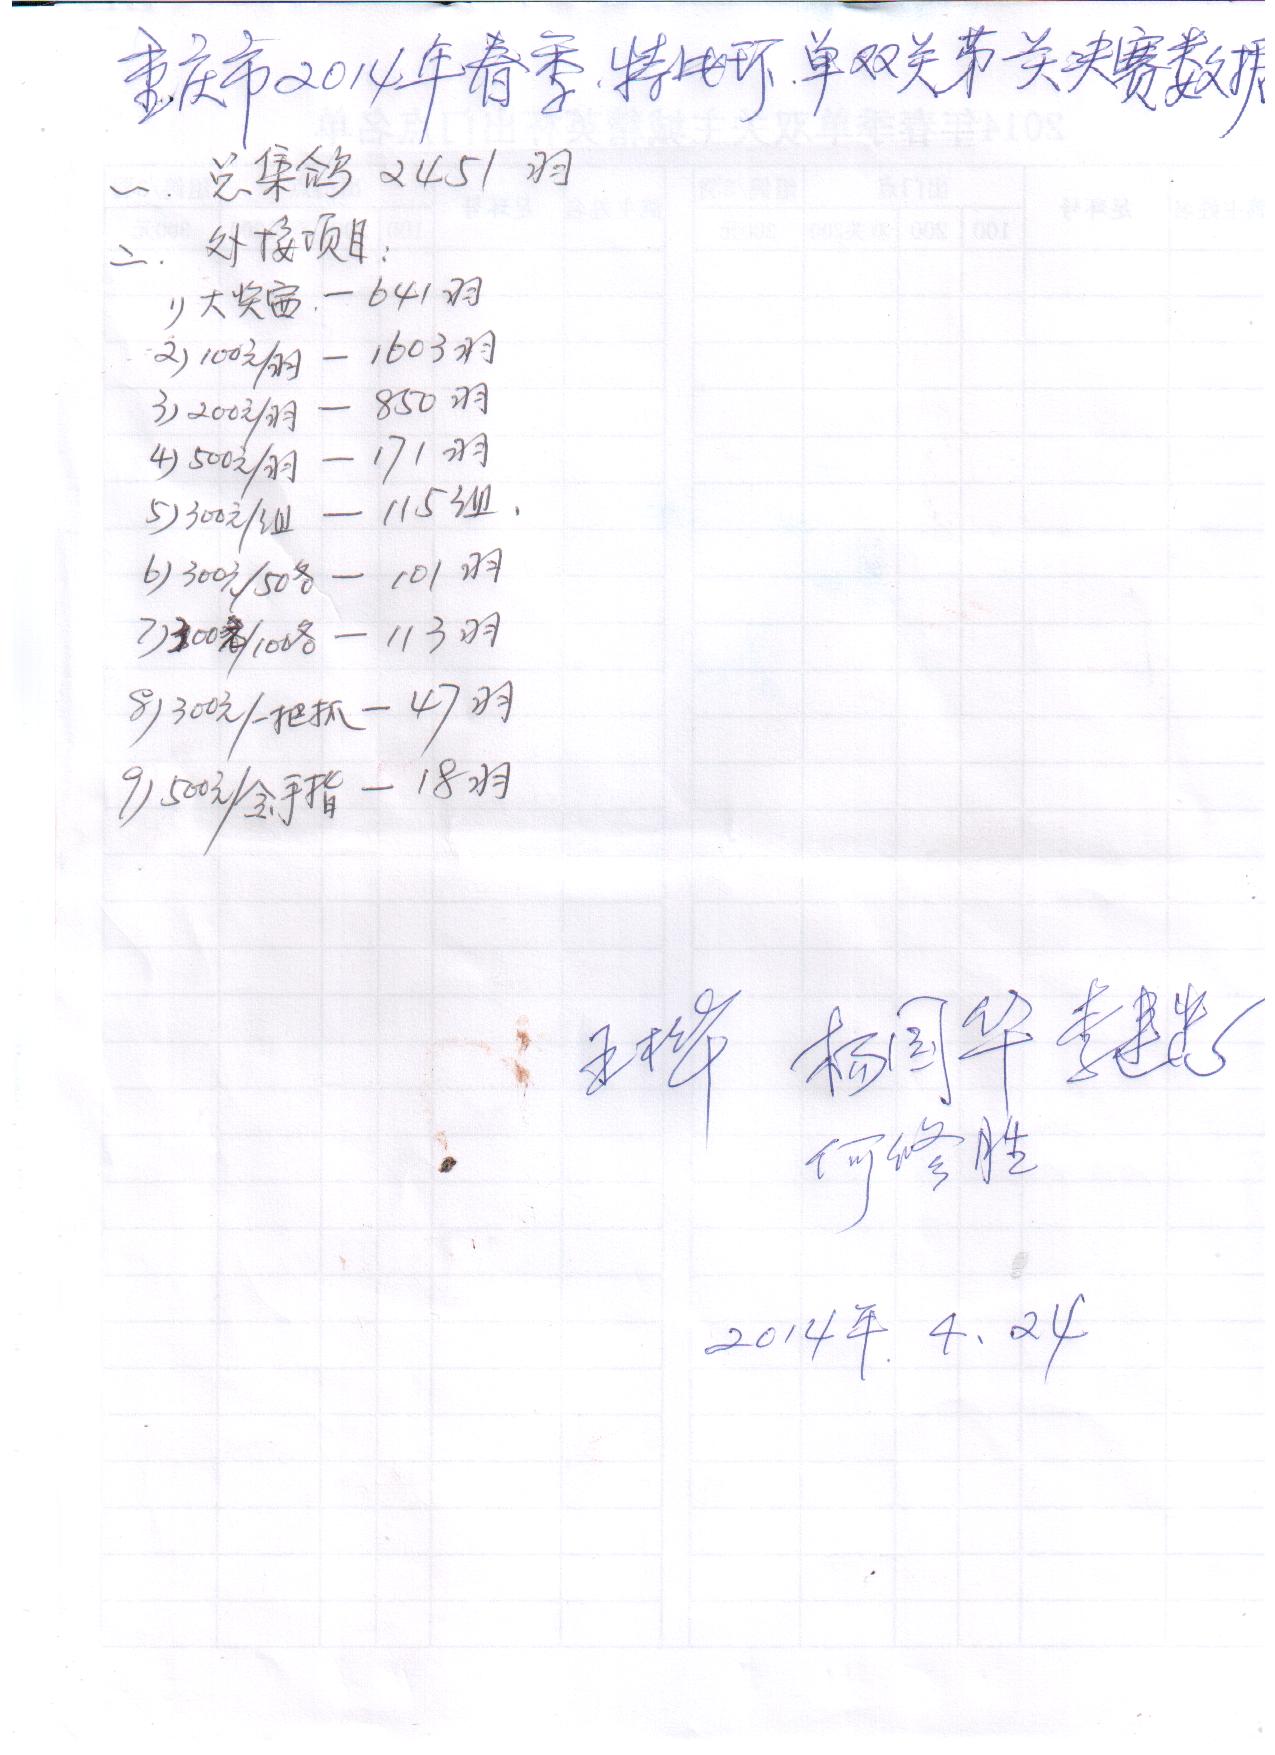 重庆市2014年春季.特比环.单双关第一关决赛数据
一. 总集鸽 2451 羽
二. 对接项目:
1) 大奖赛.— 641羽
2) 100元/羽 — 1603羽
3) 200元/羽 — 850 羽
4) 500元/羽 — 171 羽
5) 300元/组 — 115组.
6) 300元/50名 — 101 羽
7) 300/100名 — 113羽
8) 300元/一把抓 — 47 羽
9) 500元/金手指 — 18羽
王桦 杨国华 李建
何修胜
2014年.4.24
2014年春季单双关主城精英杯出门点名单